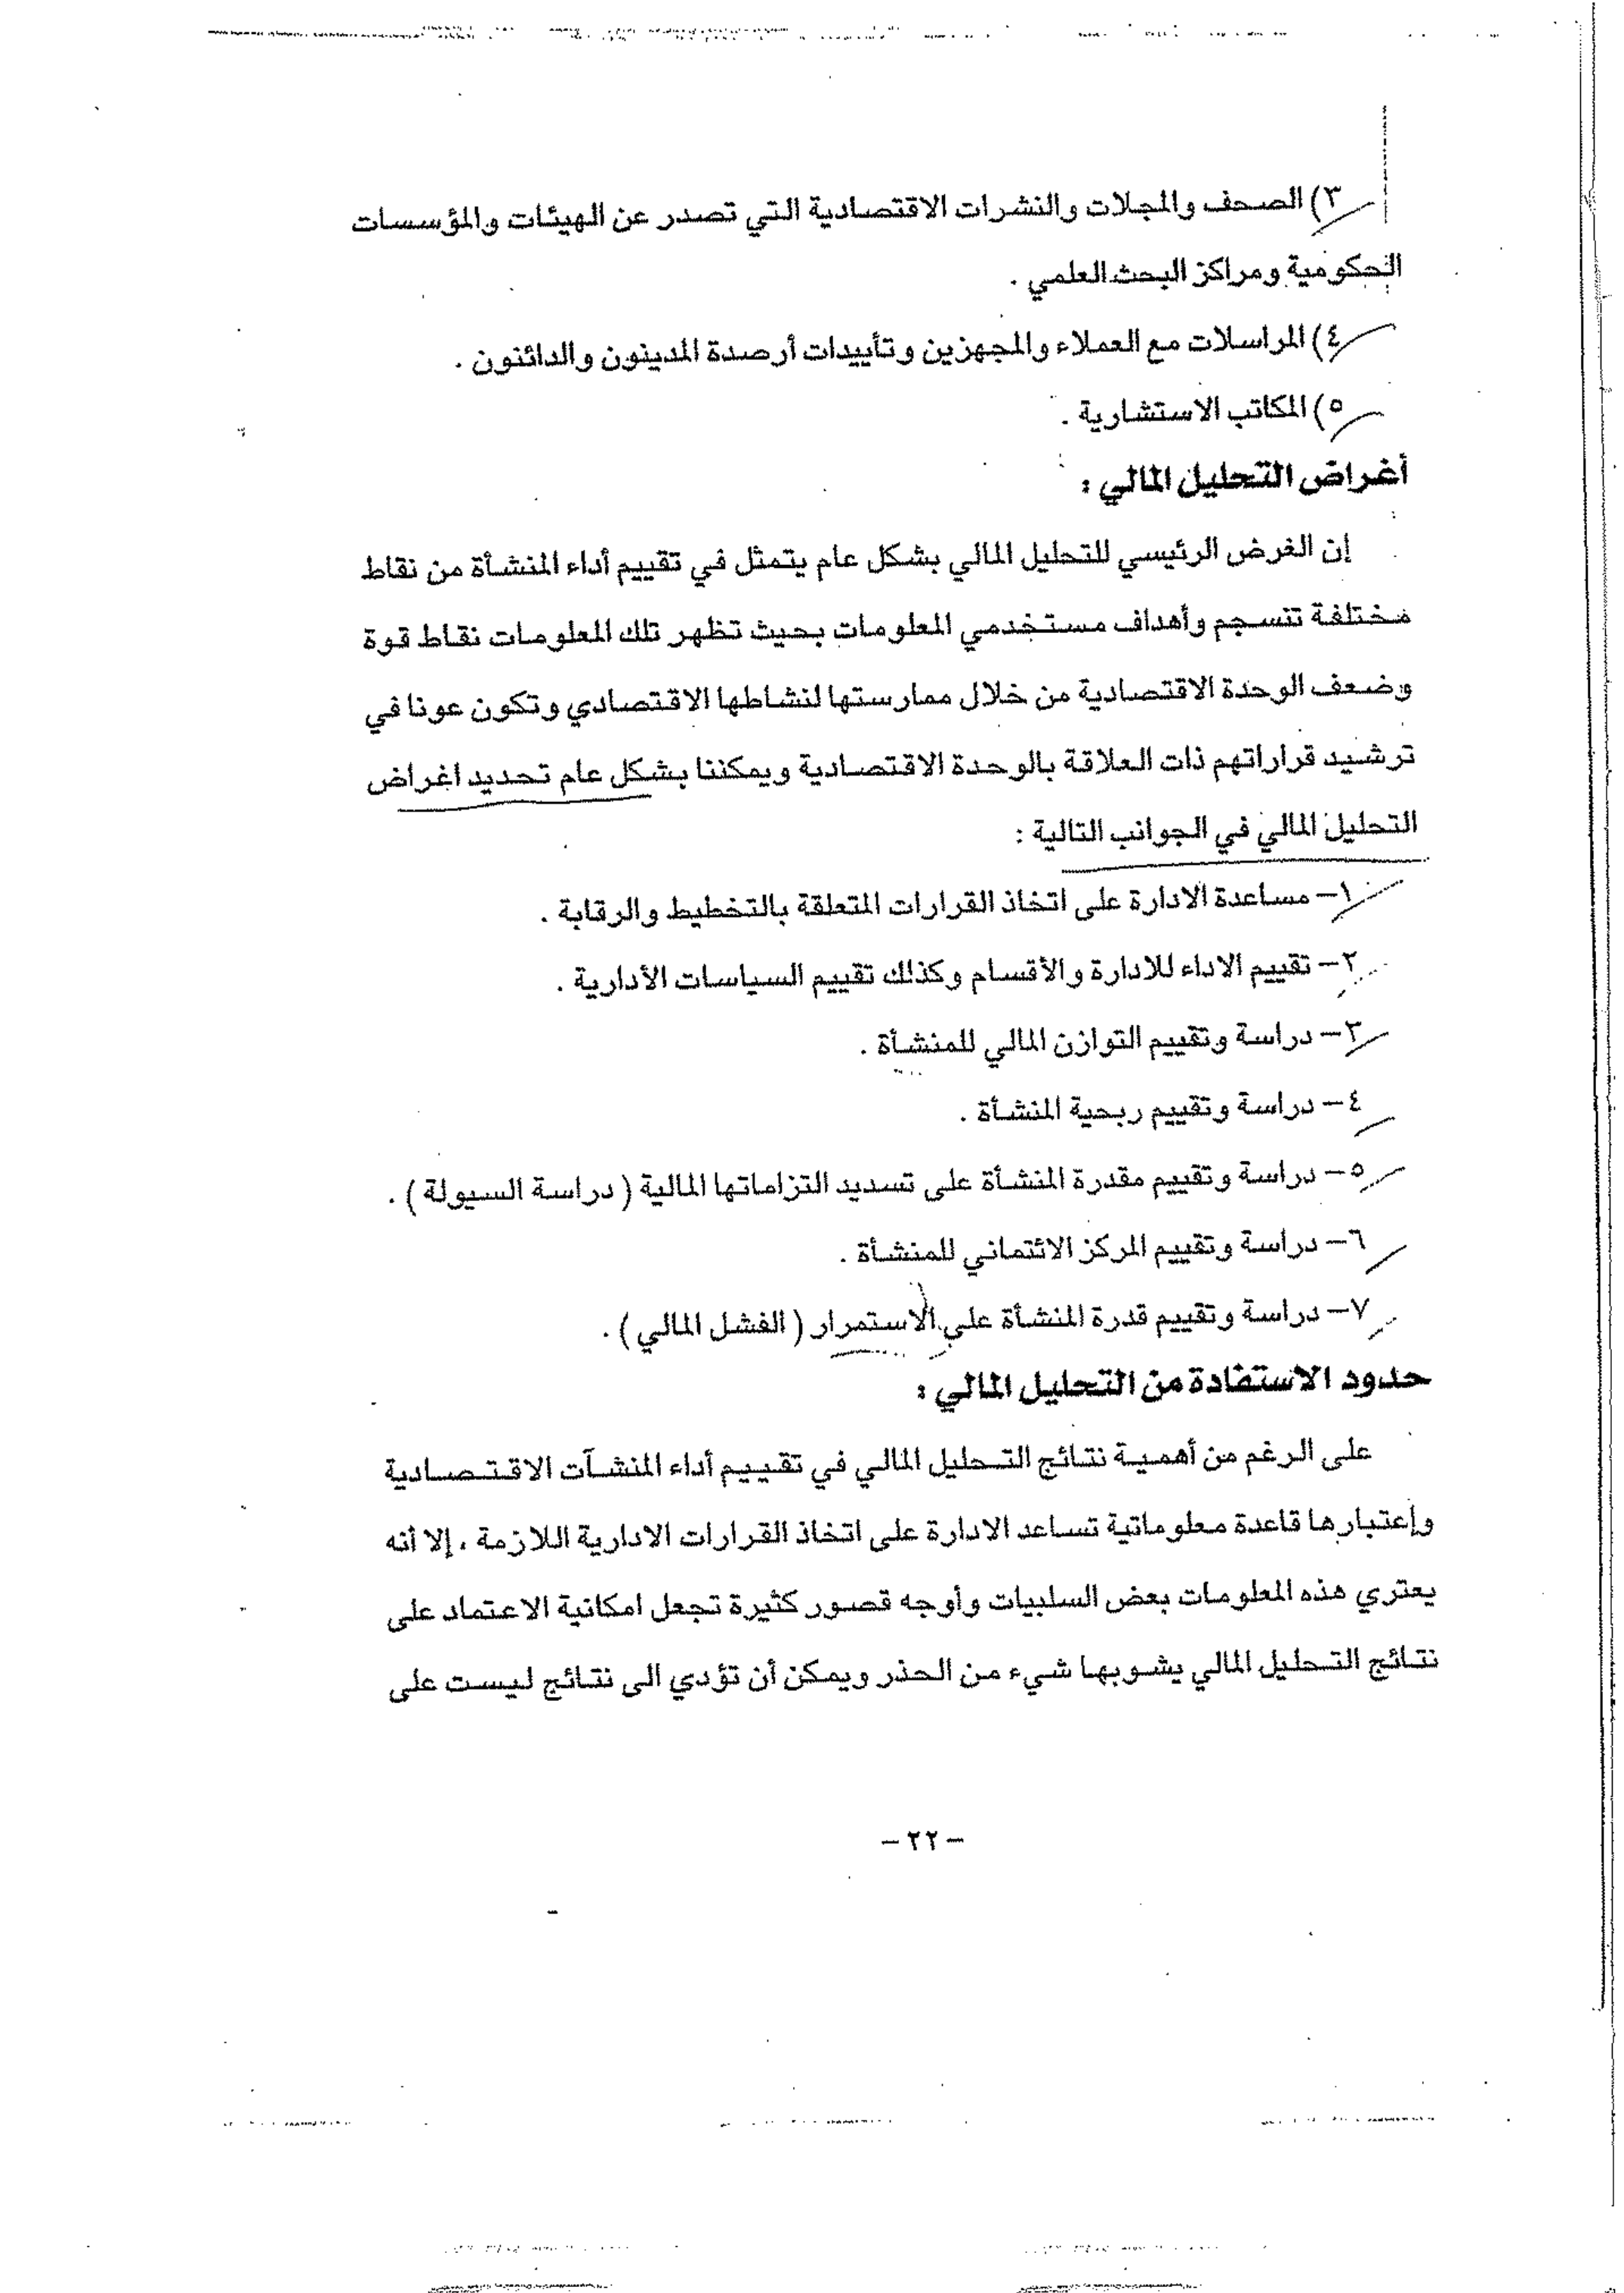 ٣) الصحف والمجلات والنشرات الاقتصادية التي تصدر عن الهيئات والمؤسسات
الحكومية ومراكز البحث العلمي .
٤) المراسلات مع العملاء والمجهزين وتأييدات أرصدة المدينون والدائنون .
٥) المكاتب الاستشارية .
أغراض التحليل المالي :
إن الغرض الرئيسي للتحليل المالي بشكل عام يتمثل في تقييم أداء المنشأة من نقاط
مختلفة تنسجم وأهداف مستخدمي المعلومات بحيث تظهر تلك المعلومات نقاط قوة
وضعف الوحدة الاقتصادية من خلال ممارستها لنشاطها الاقتصادي وتكون عونا في
ترشيد قراراتهم ذات العلاقة بالوحدة الاقتصادية ويمكننا بشكل عام تحديد اغراض
التحليل المالي في الجوانب التالية :
١– مساعدة الادارة على اتخاذ القرارات المتعلقة بالتخطيط والرقابة .
٢– تقييم الاداء للادارة والأقسام وكذلك تقييم السياسات الأدارية .
٣– دراسة وتقييم التوازن المالي للمنشأة .
٤– دراسة وتقييم ربحية المنشأة .
٥– دراسة وتقييم مقدرة المنشأة على تسديد التزاماتها المالية ( دراسة السيولة ) .
٦– دراسة وتقييم المركز الائتماني للمنشأة .
٧– دراسة وتقييم قدرة المنشأة على الاستمرار ( الفشل المالي ) .
حدود الاستفادة من التحليل المالي :
على الرغم من أهمية نتائج التحليل المالي في تقييم أداء المنشآت الاقتصادية
وإعتبارها قاعدة معلوماتية تساعد الادارة على اتخاذ القرارات الادارية اللازمة ، إلا أنه
يعتري هذه المعلومات بعض السلبيات وأوجه قصور كثيرة تجعل امكانية الاعتماد على
نتائج التحليل المالي يشوبها شيء من الحذر ويمكن أن تؤدي الى نتائج ليست على
– ٢٢ –